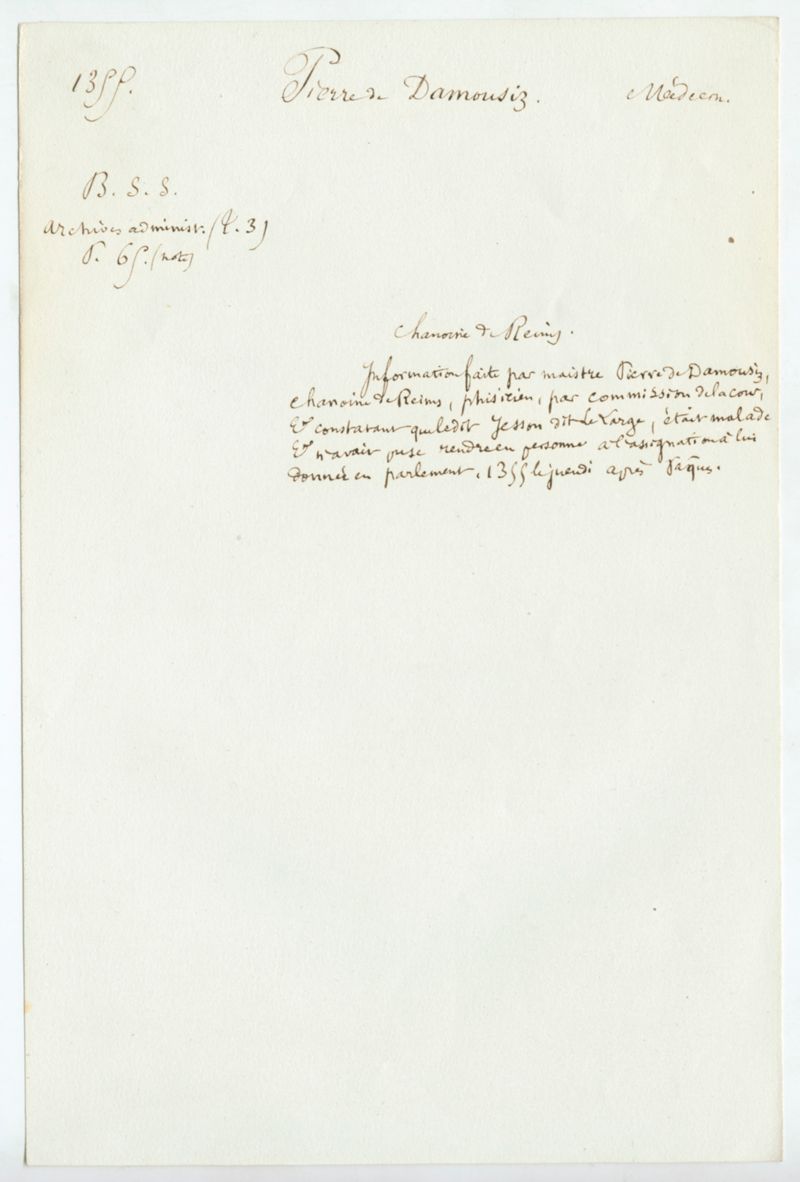 1355.
Pierre de Damousiz.
Médecin.
B. S. S.
Archives administ. (t. 3)
P. 65. (note)
Chanoine de Reims.
Information faite par maistre Pierre de Damousiz,
chanoine de Reims, phisicien, par commission de la cour,
Et constatant que ledit Jesson dit Le Large, était malade
Et n'avait pu se rendre en personne a l'assignation à lui
donnée en parlement. 1355 le jeudi après Pâques.